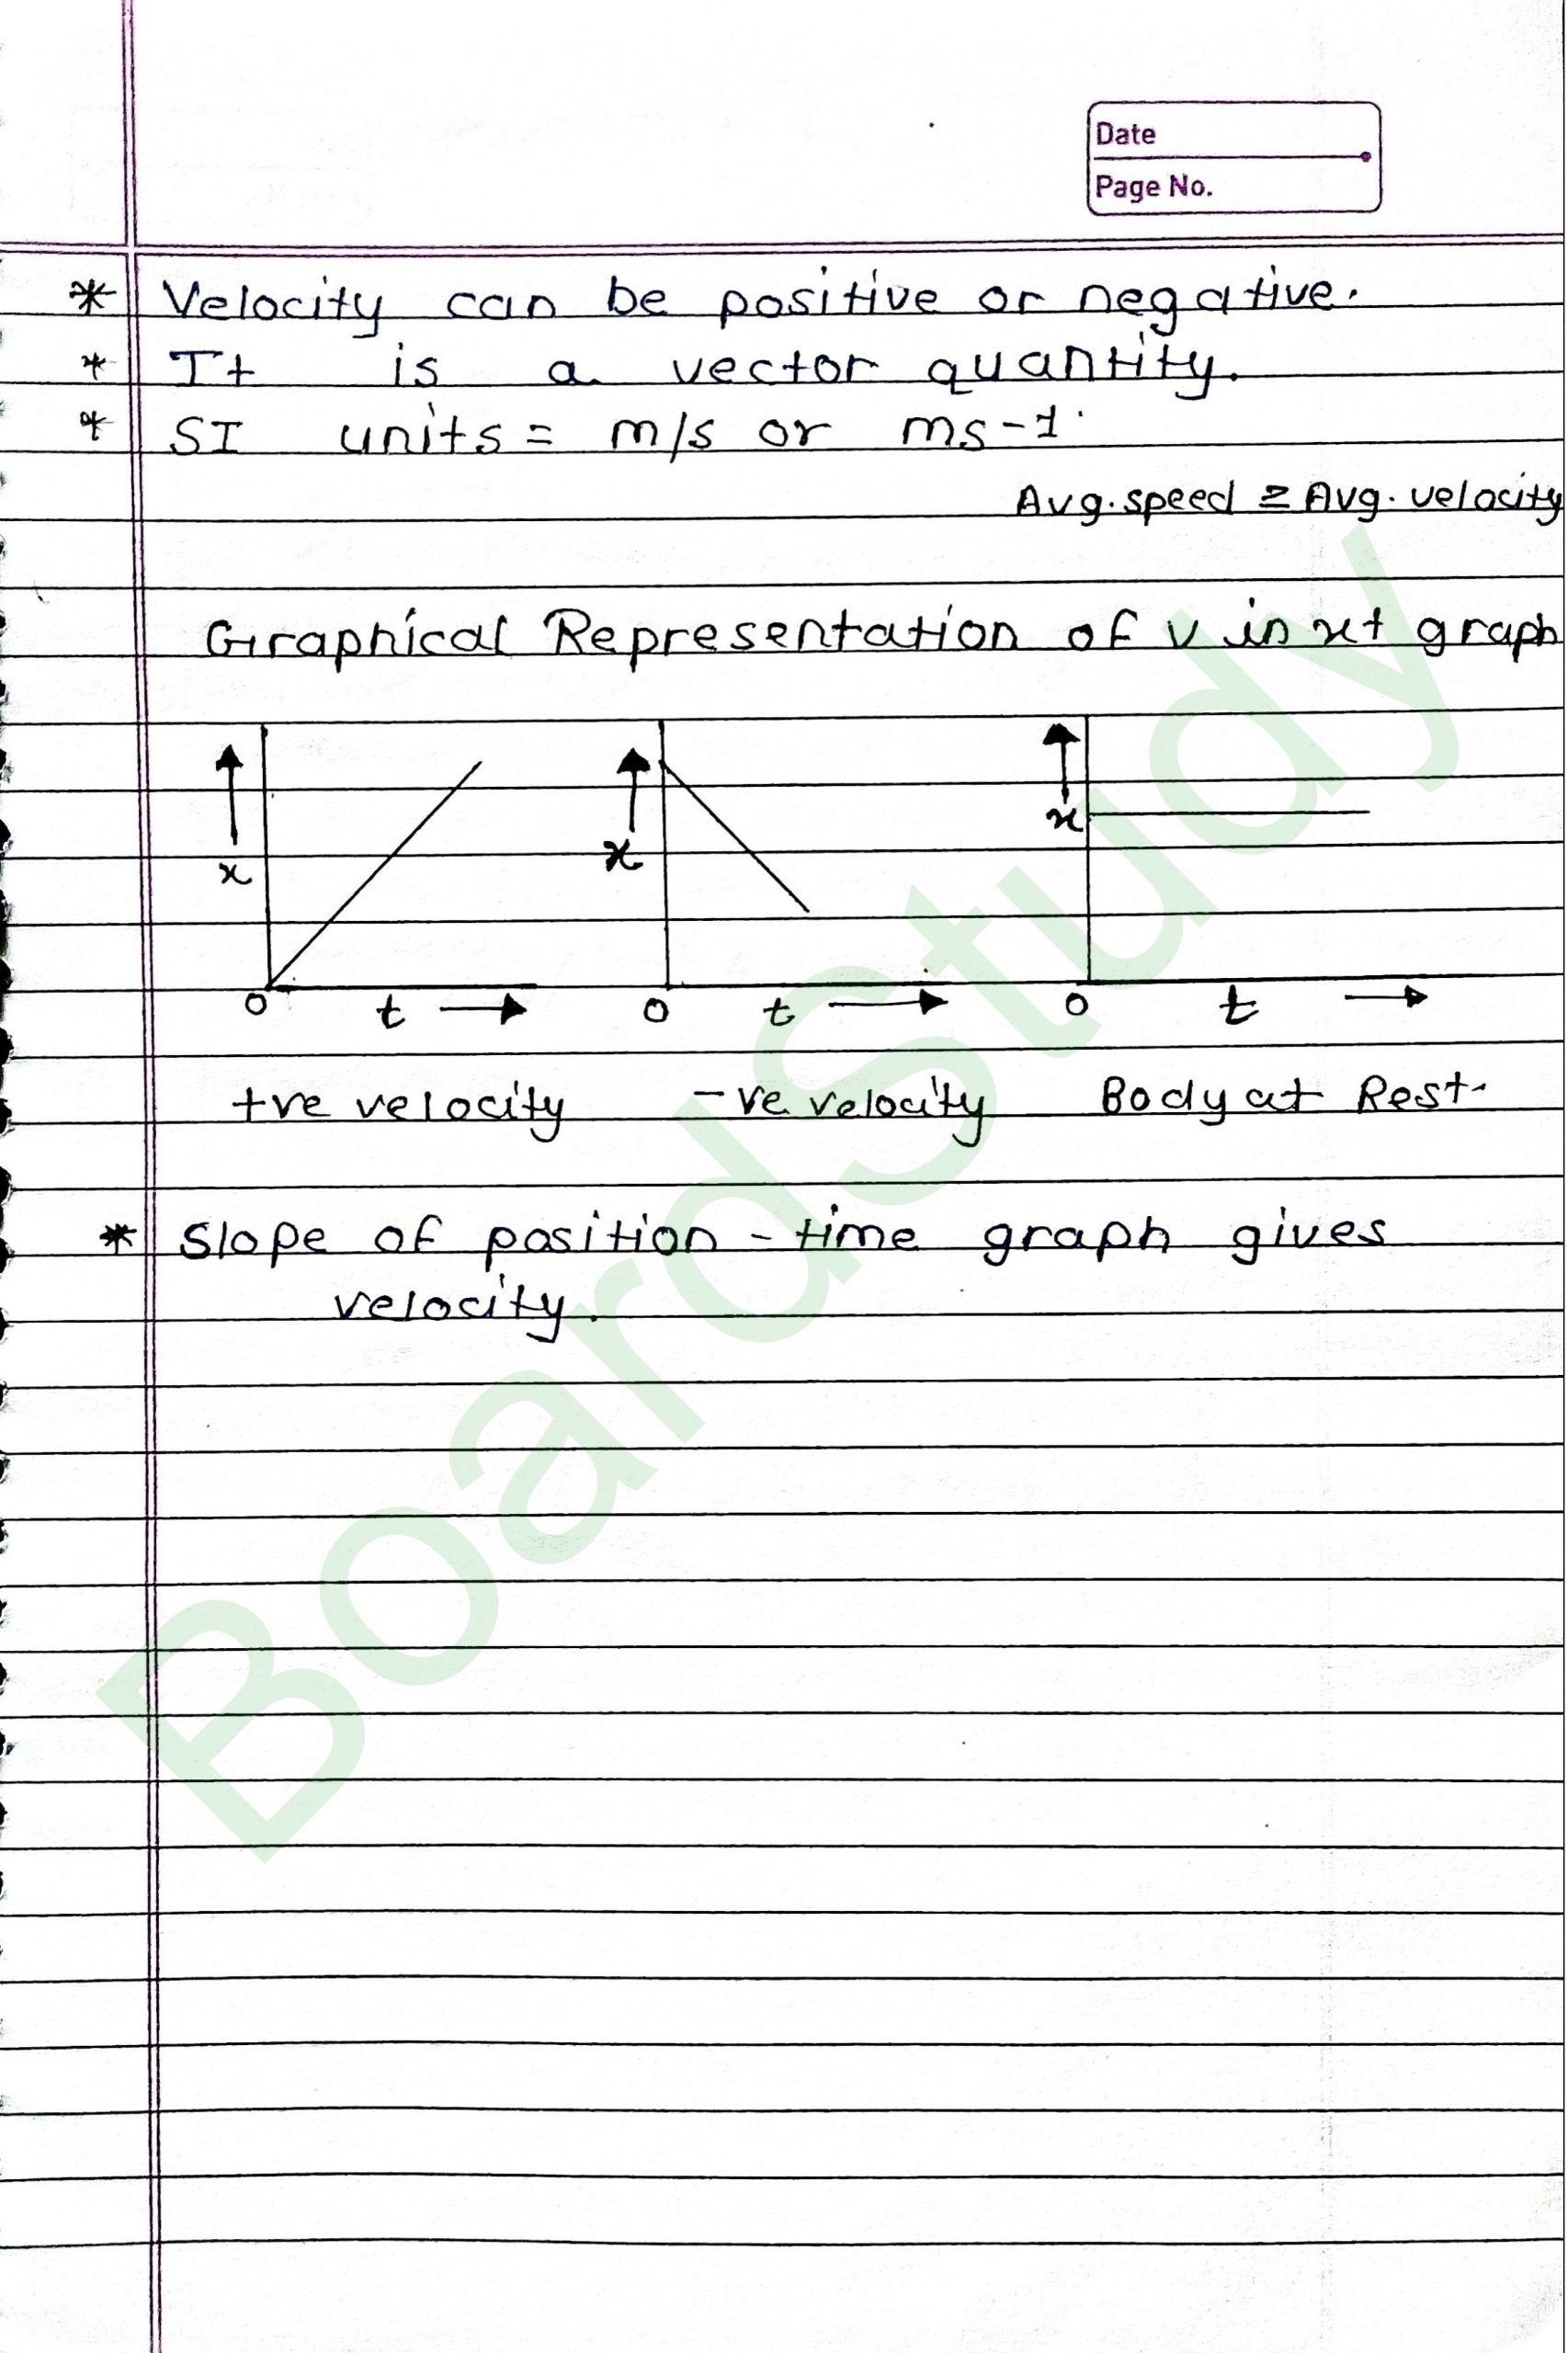 Date
Page No.
* Velocity can be positive or negative.
* It is a vector quantity.
* SI units = m/s or ms-1.
Avg. speed ≥ Avg. velocity
Graphical Representation of v in xt graph
x x x
0 t 0 t 0 t
+ve velocity -ve velocity Body at Rest.
* Slope of position - time graph gives
velocity.
BoardStudy